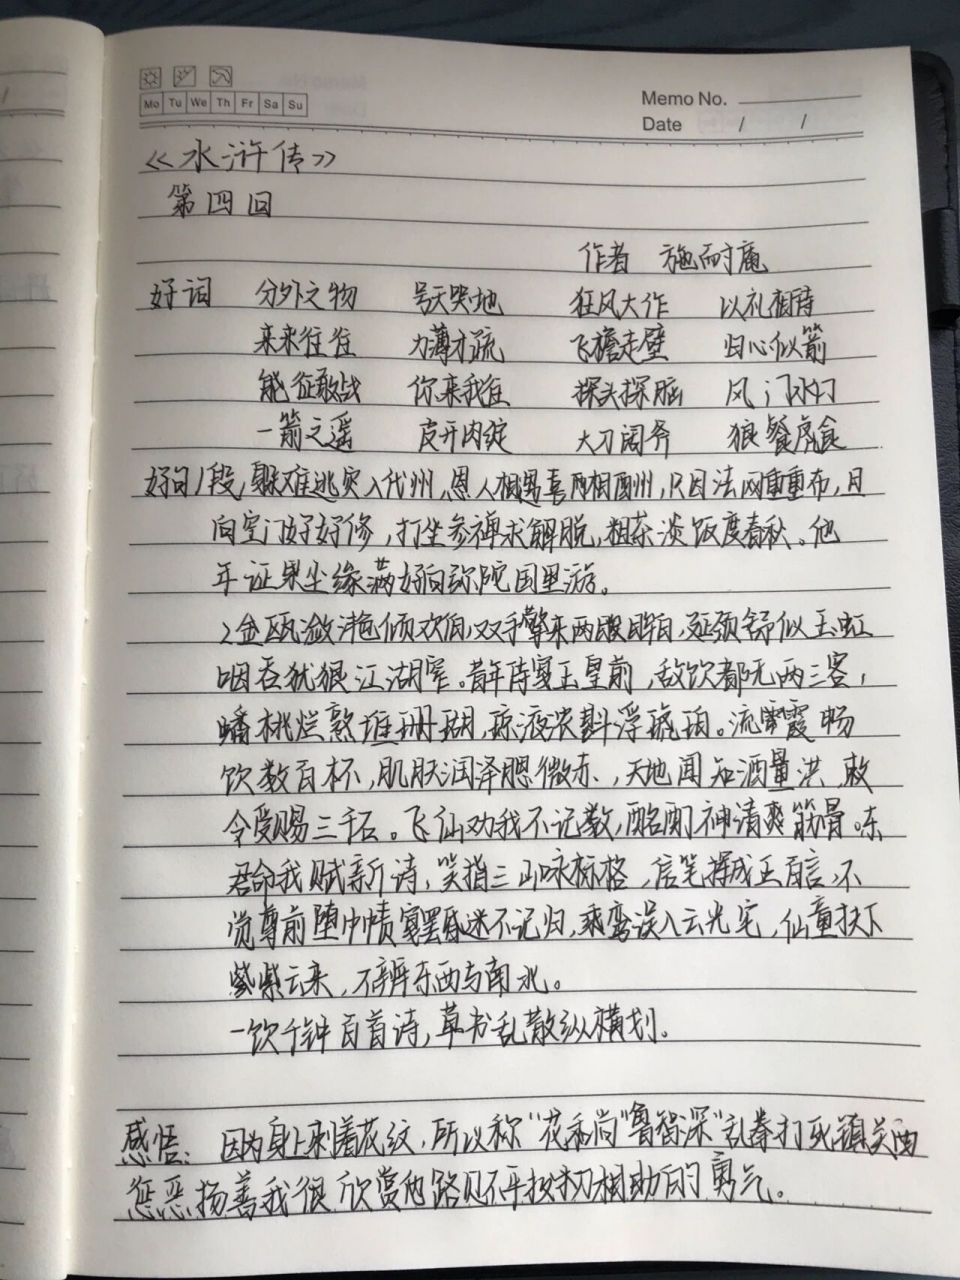 Mo Tu We Th Fr Sa Su
Memo No.
Date / /
《水浒传》
第四回
作者 施耐庵
好词 分外之物 号天哭地 狂风大作 以礼相待
来来往往 力薄才疏 飞檐走壁 归心似箭
能征敢战 你来我往 探头探脑 风门水门
一箭之遥 皮开肉绽 大刀阔斧 狼餐虎食
好句1段,躲难逃灾入代州,恩人相遇喜两相酬州,只因法网重重布,且
向空门好好修,打坐参禅求解脱,粗茶淡饭度春秋。他
年证果尘缘满好向弥陀国里游。
2金瓯潋滟倾欢伯,双手擎来两眸白,延颈舒似玉虹
咽吞犹狠江湖窄。昔年侍宴玉皇前,敌饮都无两三客,
蟠桃烂熟堆珊瑚,琼液浓斟浮琥珀。流霞畅
饮数百杯,肌肤润泽腮微赤,天地闻知酒量洪,敕
令受赐三千石。飞仙劝我不记数,酩酊神清爽筋骨。东
君命我赋新诗,笑指三山咏标格,信笔挥成五百言,不
觉尊前堕巾帻宴罢昏迷不记归,乘鸾误入云光宅,仙童扶下
紫云来,不辨东西与南北。
一饮千钟百首诗,草书乱散纵横划。
感悟:因为身上刺着花纹,所以称"花和尚"鲁智深"乱拳打死镇关西
惩恶扬善我很欣赏他路见不平拔刀相助的勇气。